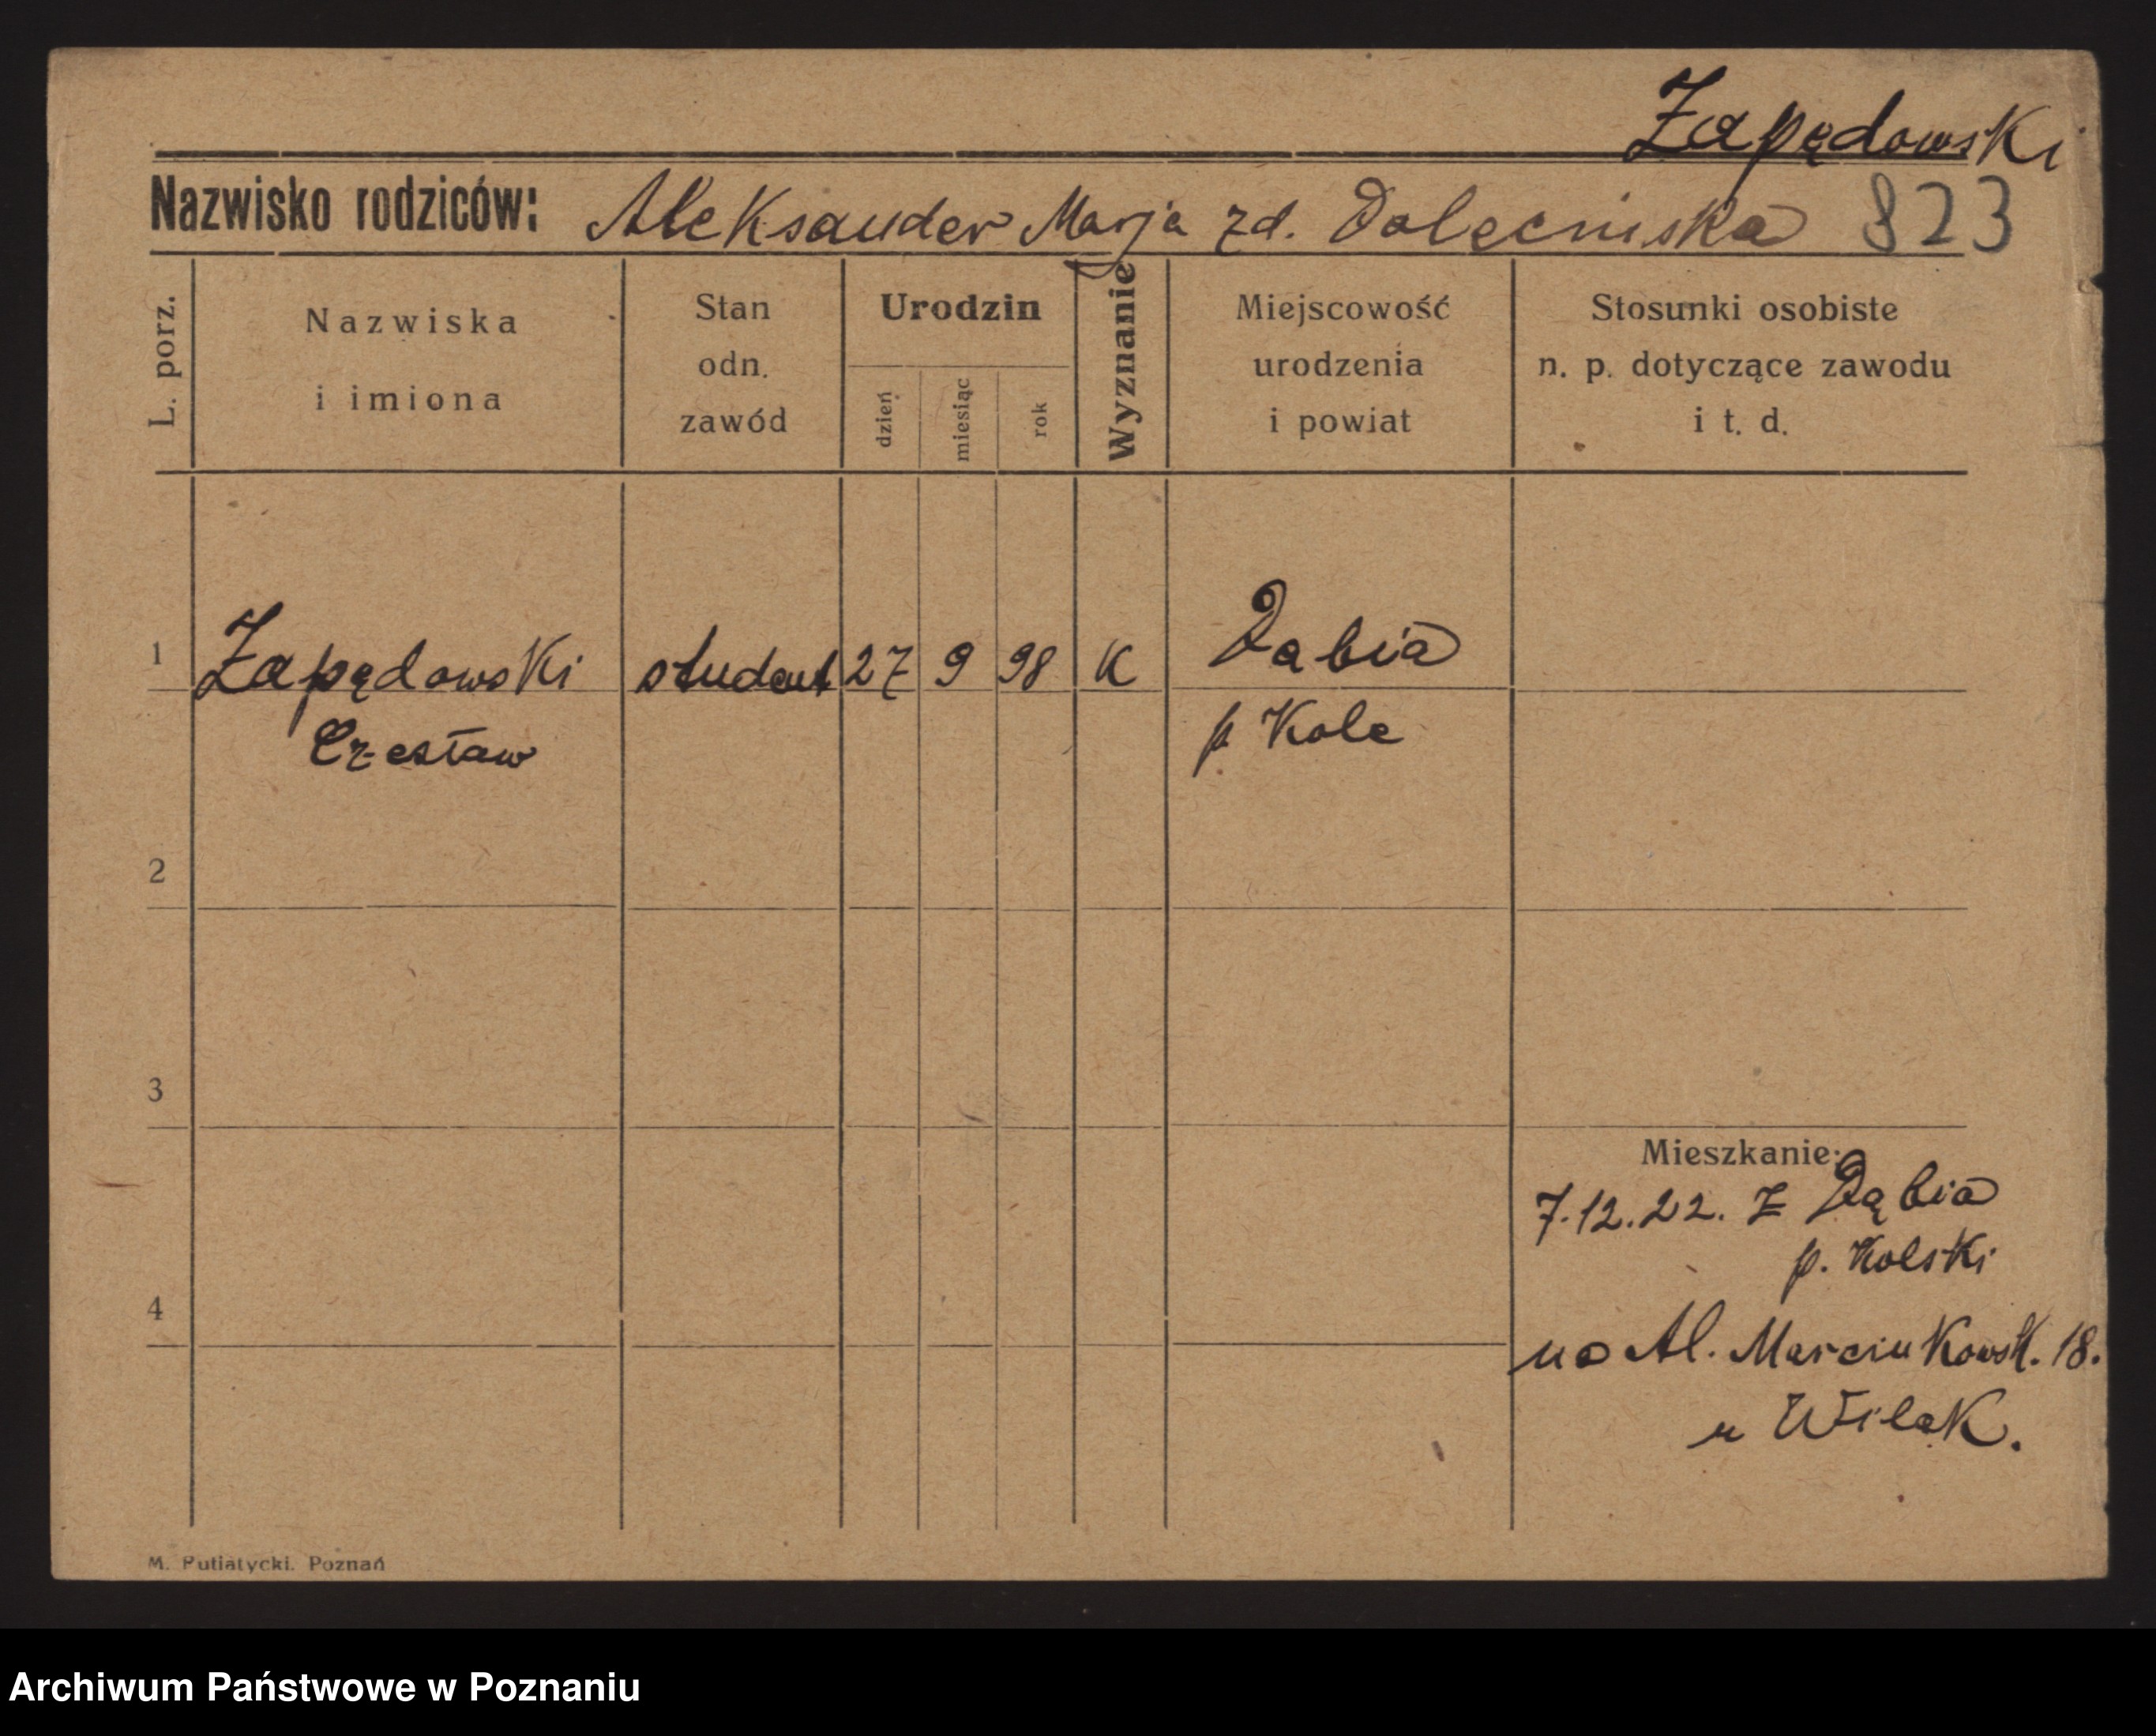 Zapędowski
Nazwisko rodziców: Aleksander Marja zd. Dolecińska 823
L. porz.
Nazwiska
i imiona
Stan
odn.
zawód
Urodzin
dzień
miesiąc
rok
Wyznanie
Miejscowość
urodzenia
i powiat
Stosunki osobiste
n. p. dotyczące zawodu
i t. d.
1 Zapędowski student 27 9 98 K Dąbia
Czesław p Kole
2
3
Mieszkanie:
7.12.22. z Dąbia
p. Kolski
4
na Al. Marcinkowsk. 18.
u Wilak.
M. Putiatycki. Poznań
Archiwum Państwowe w Poznaniu